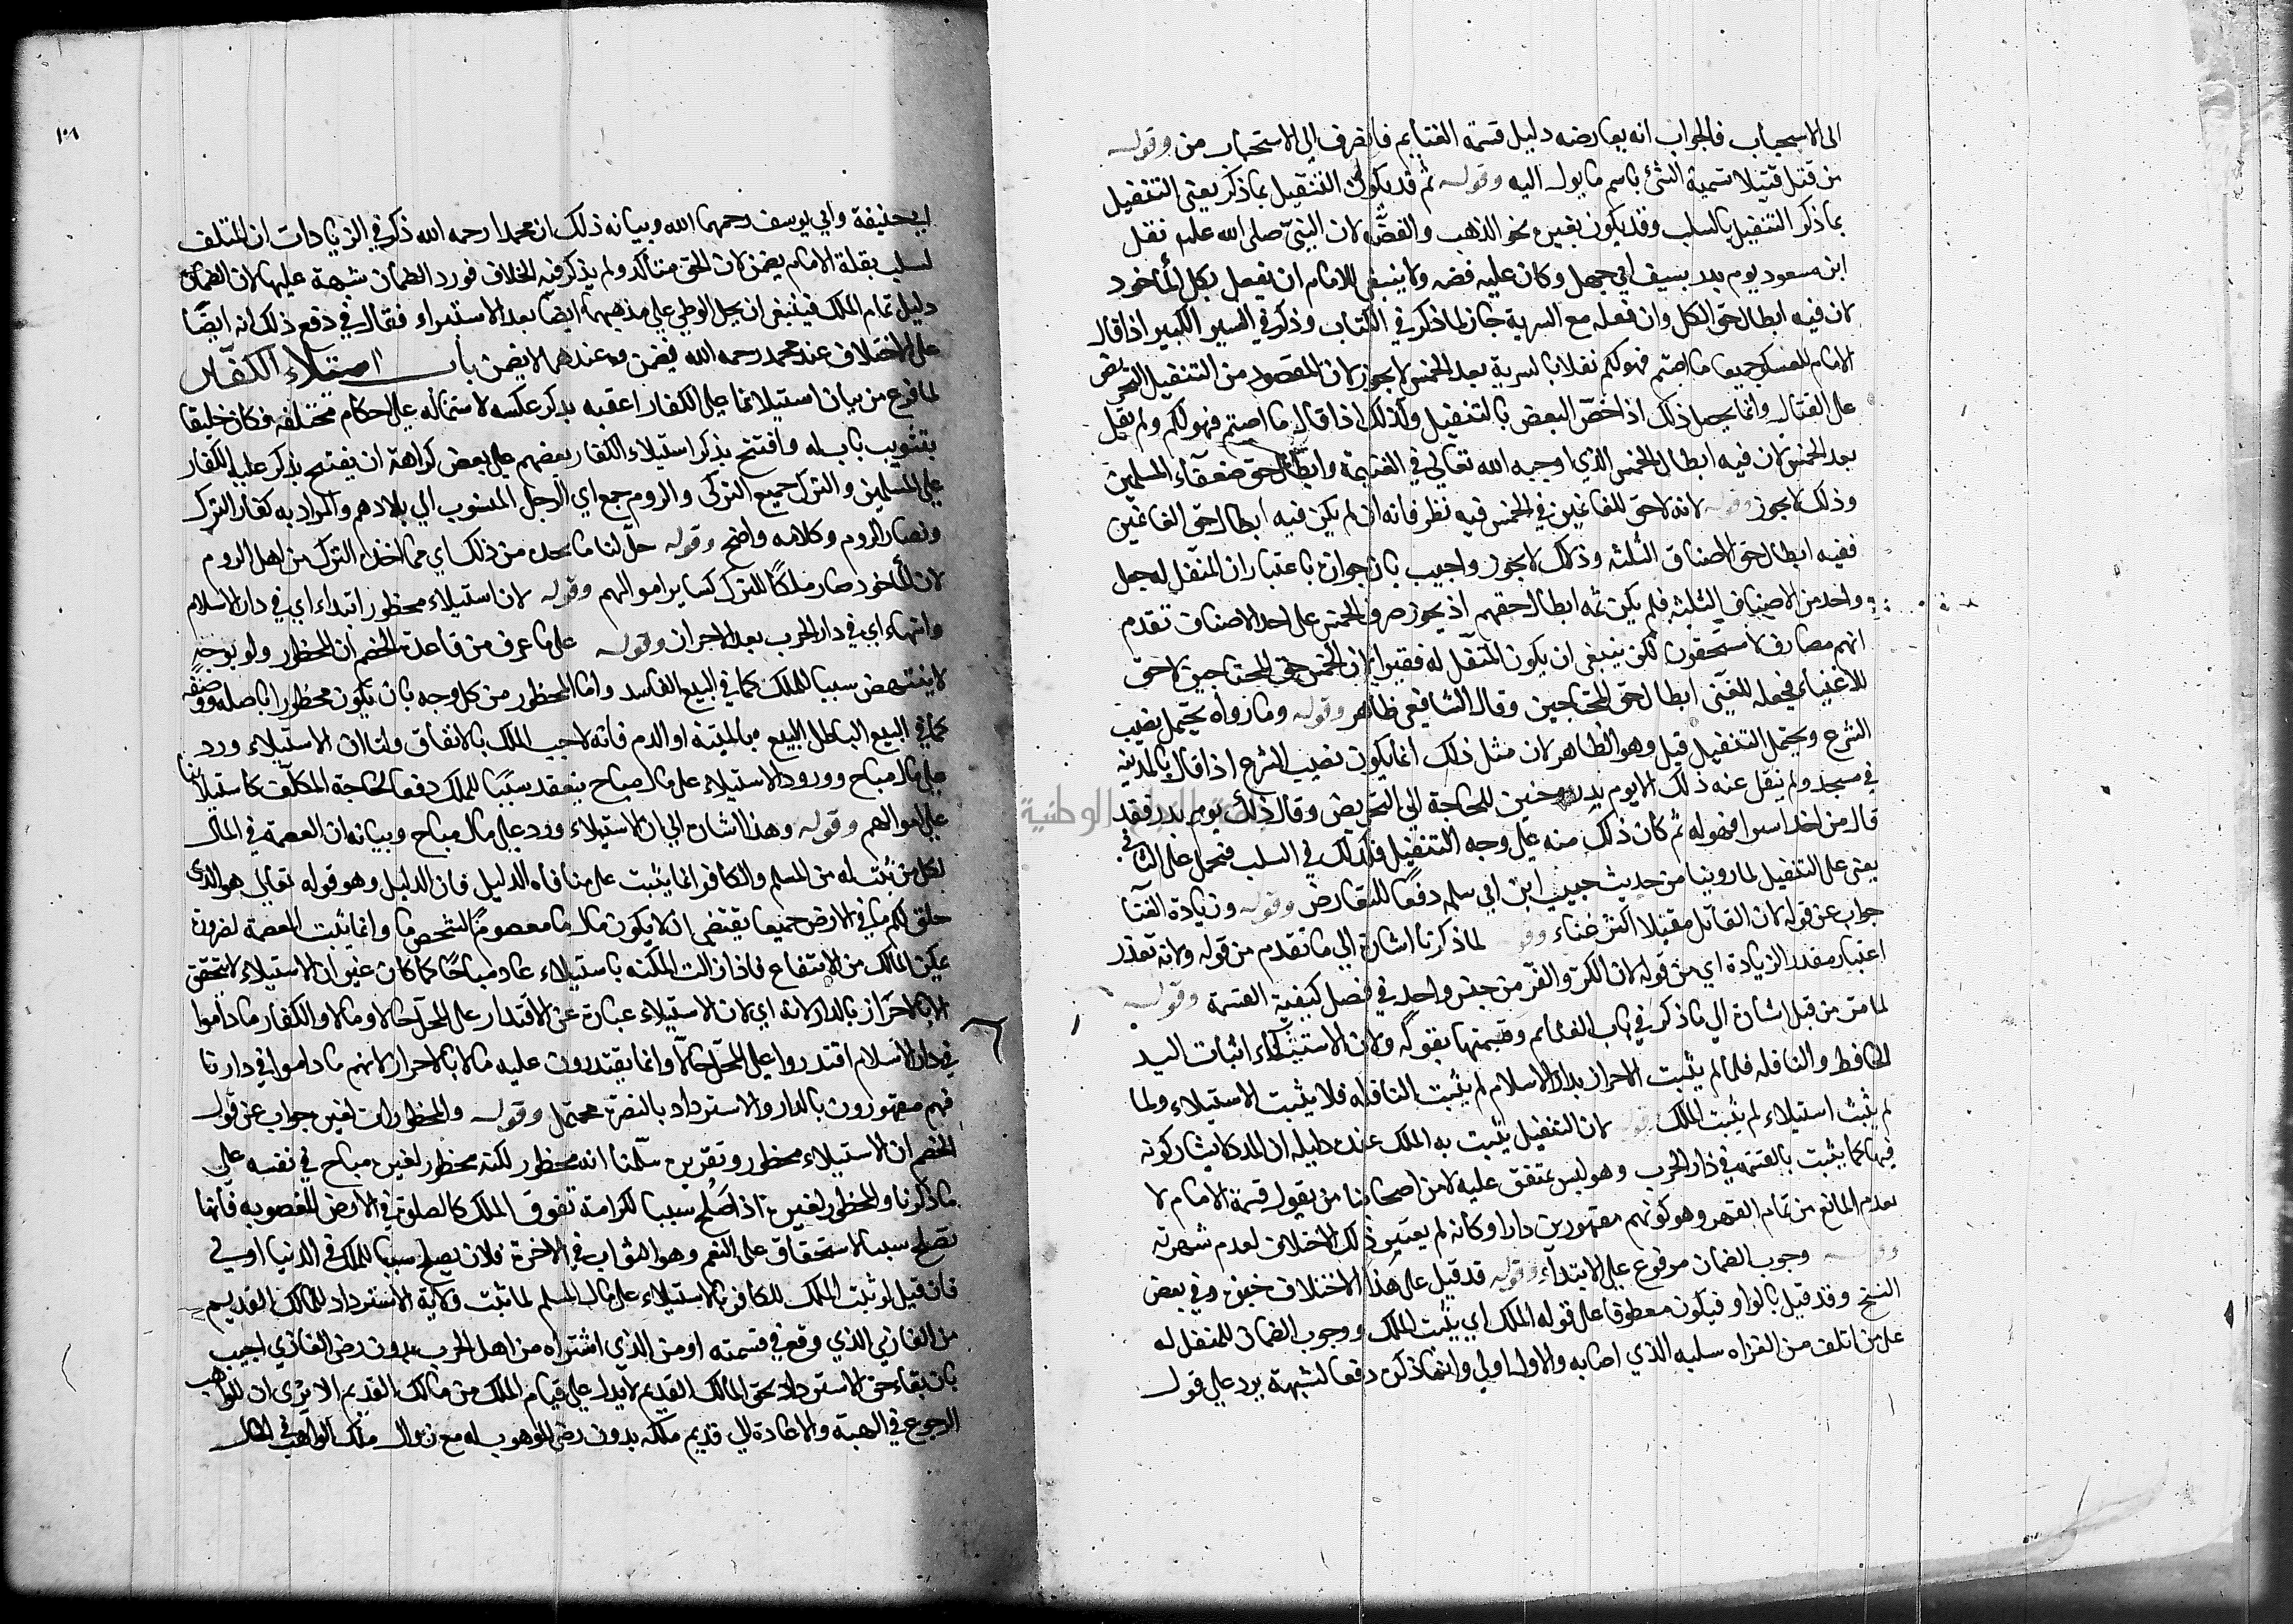 الى الاستحباب فالجواب انه يعارضه دليل قسمة الغنايم فانصرف الى الاستحباب من وقوله
من قتل قتيلا تسمية الشئ باسم ما يول اليه وقوله ثم قد يكون التنفيل بما ذكر يعني التنفيل
بما ذكر التنفيل بالسلب وقد يكون بغيره نحو الذهب والفضة لان النبي صلى الله عليه نفل
ابن مسعود يوم بدر بسيف ابي جهل وكان عليه فضه ولا ينبغي للامام ان يفعل بكل المأخوذ
لان فيه ابطال حق الكل وان فعله مع السرية جاز لما ذكر في الكتاب وذكر في السير الكبير اذا قال
الامام للعسكر جميعا ما اصبتم فهو لكم نفلا بالسرية بعد الخمس لا يجوز لان المقصود من التنفيل التحريض
على القتال وانما يحصل ذلك اذا خص البعض بالتنفيل وكذلك اذا قال ما اصبتم فهو لكم ولم يقل
بعد الخمس لان فيه ابطال الخمس الذي اوجبه الله تعالى في الغنيمة وابطال حق ضعفاء المسلمين
وذلك لا يجوز وقوله لانه لا حق للغانمين في الخمس فيه نظر فانه ان لم يكن فيه ابطال حق الغانمين
ففيه ابطال حق الاصناف الثلثه وذلك لا يجوز واجيب بان جوازه باعتبار ان المنفل له جعل
واحد من الاصناف الثلثه فلم يكن ثمه ابطال حقهم اذ يجوز صرف الخمس على احد الاصناف تقدم
انهم مصارف لا مستحقون لكن ينبغي ان يكون المنفل له فقيرا لان الخمس حق المحتاجين لا حق
للاغنياء فجعله للغني ابطال حق المحتاجين وقال الشافعي ظاهر وقوله وما رواه يحتمل نصب
الشرع ويحتمل التنفيل قيل وهو الظاهر لان مثل ذلك انما يكون نصب الشرع اذا قال بالمدينه
في مسجده ولم ينقل عنه ذلك الا يوم بدر وحنين للحاجة الى التحريض وقال ذلك يوم بدر فقد
قال من اخذ اسيرا فهو له ثم كان ذلك منه على وجه التنفيل فكذلك في السلب فنحمل على الثاني
يعني على التنفيل لما روينا من حديث حبيب ابن ابي سلمه دفعا للتعارض وقوله وزيادة الغنا
جواب عن قوله لان القاتل مقبلا اكثر غناء وقوله لما ذكرنا اشارة الى ما تقدم من قوله ولانه تعذر
اعتبار مقدر الزيادة اي من قوله لان الكر والفر من جنس واحد في فصل كيفية القسمة وقوله
لما مر من قبل اشارة الى ما ذكر في باب الغنايم وقسمتها بقوله ولان الاستيلاء اثبات اليد
الحافظه والناقله فلما لم يثبت الاحراز بدار الاسلام لم يثبت الناقله فلا يثبت الاستيلاء ولما
لم يثبت استيلاء لم يثبت الملك وقوله لان التنفيل يثبت به الملك عنده دليله ان المدد لا يشاركونه
فيها كما يثبت بالقسمه في دار الحرب وهو ليس بمتفق عليه لان من اصحابنا من يقول قسمة الامام لا
بعدم المانع من تمام القهر وهو كونهم مقهورين دارا وكانه لم يعتبر ذلك الاختلاف لعدم شهرته
وقوله وجوب الضمان مرفوع على الابتداء وقوله قد قيل على هذا الاختلاف خبره وفي بعض
النسخ وقد قيل بالواو فيكون معطوفا على قوله الملك اي يثبت الملك ووجوب الضمان للمنفل له
على من اتلف من الغزاه سلبه الذي اصابه والاول اولى وانما ذكره دفعا لشبهة يرد على قول
١٠٨
ابي حنيفة وابي يوسف رحمهما الله وبيانه ذلك ان محمدا رحمه الله ذكر في الزيادات ان المتلف
لسلب نفله الامام يضمن لان الحق متأكد ولم يذكر فيه الخلاف فورد الضمان شبهة عليهما لان الضمان
دليل تمام الملك فينبغي ان يحل الوطي على مذهبهما ايضا بعد الاستبراء فقال في دفع ذلك انه ايضا
على الاختلاف عند محمد رحمه الله يضمن وعندهما لا يضمن باب استيلاء الكفار
لما فرغ من بيان استيلائنا على الكفار اعقبه بذكر عكسه لاشتماله على احكام مختلفه فكان خليقا
بتبويب باب له وافتتح بذكر استيلاء الكفار بعضهم على بعض كراهة ان يفتتح بذكر غلبه الكفار
على المسلمين والترك جمع التركى والروم جمع اي الرجل المنسوب الى بلادهم والمراد به كفار الترك
ونصارى الروم وكلامه واضح وقوله حل لنا ما نجده من ذلك اي مما اخذه الترك من اهل الروم
لان المأخوذ صار ملكا للترك كساير اموالهم وقوله لان استيلاء محظور ابتداء اي في دار الاسلام
وانتهاء اي في دار الحرب بعد الاحراز وقوله على ما عرف من قاعدة الخصم ان المحظور ولو بوجه
لا ينتهض سببا للملك كما في البيع الفاسد واما المحظور من كل وجه بان يكون محظورا باصله ووصفه
كما في البيع الباطل البيع بالميتة او الدم فانه لا يجب الملك بالاتفاق ولنا ان الاستيلاء ورد
على مال مباح وورود الاستيلاء على مال مباح ينعقد سببا للملك دفعا لحاجة المكلف كاستيلائنا
على اموالهم وقوله وهذا اشارة الى ان الاستيلاء ورد على مال مباح وبيانه ان العصمة في المال
لكل من ثبت له من المسلم والكافر انما يثبت على منافاه الدليل فان الدليل وهو قوله تعالى هو الذي
خلق لكم ما في الارض جميعا يقتضي ان لا يكون مال ما معصوما لشخص ما وانما ثبت العصمة لضرورة
تمكين المالك من الانتفاع فاذا زالت المكنه باستيلاء عاد مباحا كما كان غير ان الاستيلاء لا يتحقق
الا بالاحراز بالدار لانه اي لان الاستيلاء عبارة عن الاقتدار على المحل حالا ومالا والكفار ما داموا
في دار الاسلام اقتدروا على المحل حالا وانما يقتدرون عليه مالا بالاحراز لانهم ما داموا في دارنا
فهم مقهورون بالدار والاسترداد بالنصرة محتمل وقوله والمحظورات لغيره جواب عن قول
الخصم ان الاستيلاء محظور وتقريره سلمنا انه محظور لكنه محظور لغيره مباح في نفسه على
ما ذكرنا والمحظور لغيره اذا صلح سببا لكرامة تفوق الملك كالصلوة في الارض المغصوبه فانها
تصلح سببا لاستحقاق على النعم وهو الثواب في الاخرة فلان يصلح سببا للملك في الدنيا اولى
فان قيل لو ثبت الملك للكافر بالاستيلاء على مال المسلم لما ثبت ولاية الاسترداد للمالك القديم
من الغازي الذي وقع في قسمته او من الذي اشتراه من اهل الحرب بدون رضى الغازي اجيب
بان بقاء حق الاسترداد بحق المالك القديم لا يدل على قيام الملك من مالك القديم الا ترى ان للواهب
الرجوع في الهبة والاعادة الى قديم ملكه بدون رضى الموهوب له مع زوال ملك الواهب في الحال